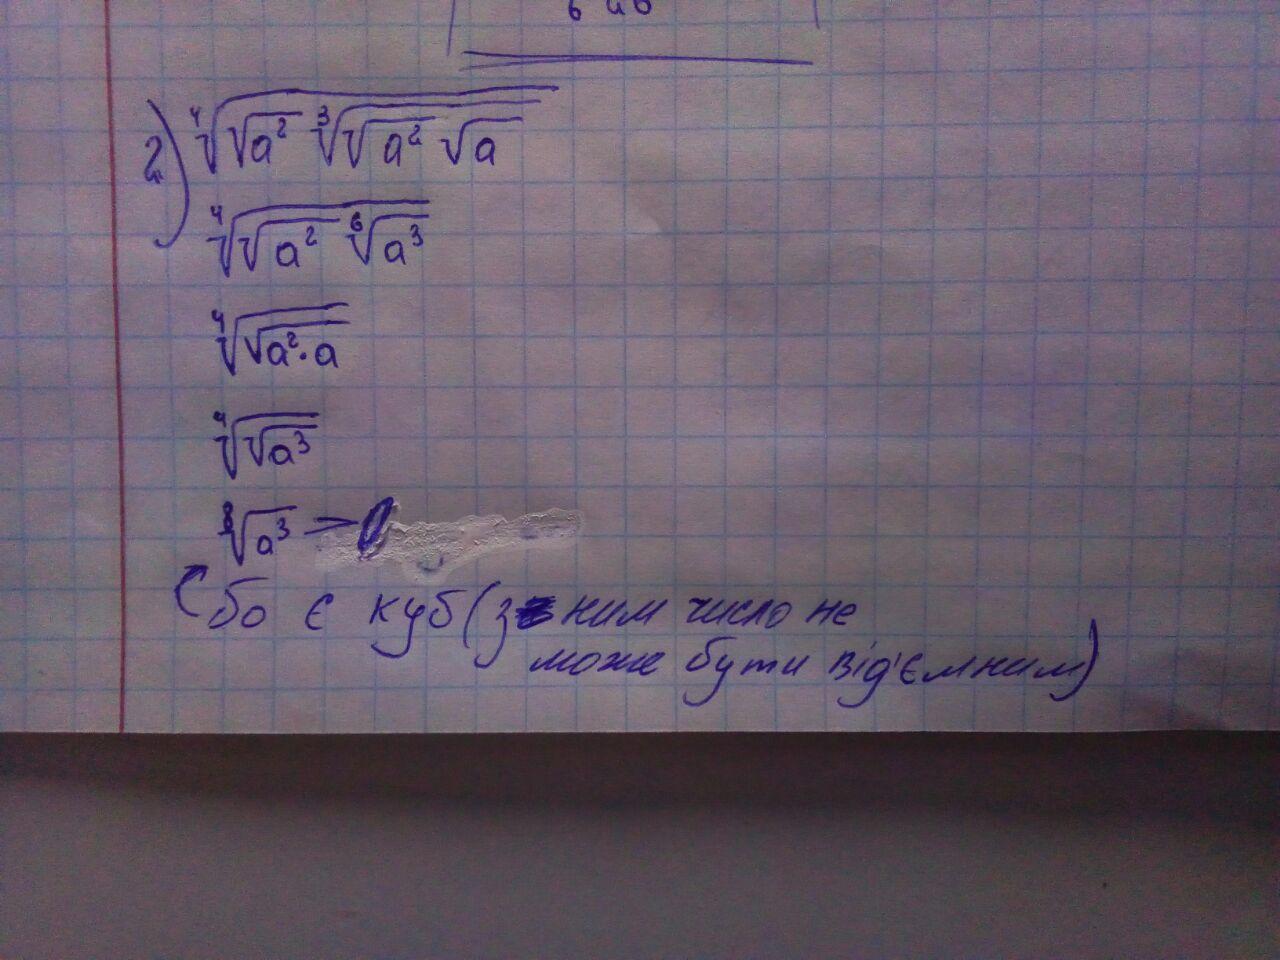 2) ⁴√(√a² ³√(√a² √a))
⁴√(√a² ⁶√a³)
⁴√(√a²·a)
⁴√(√a³)
⁸√a³ –
бо є куб (з ним число не
може бути від'ємним)